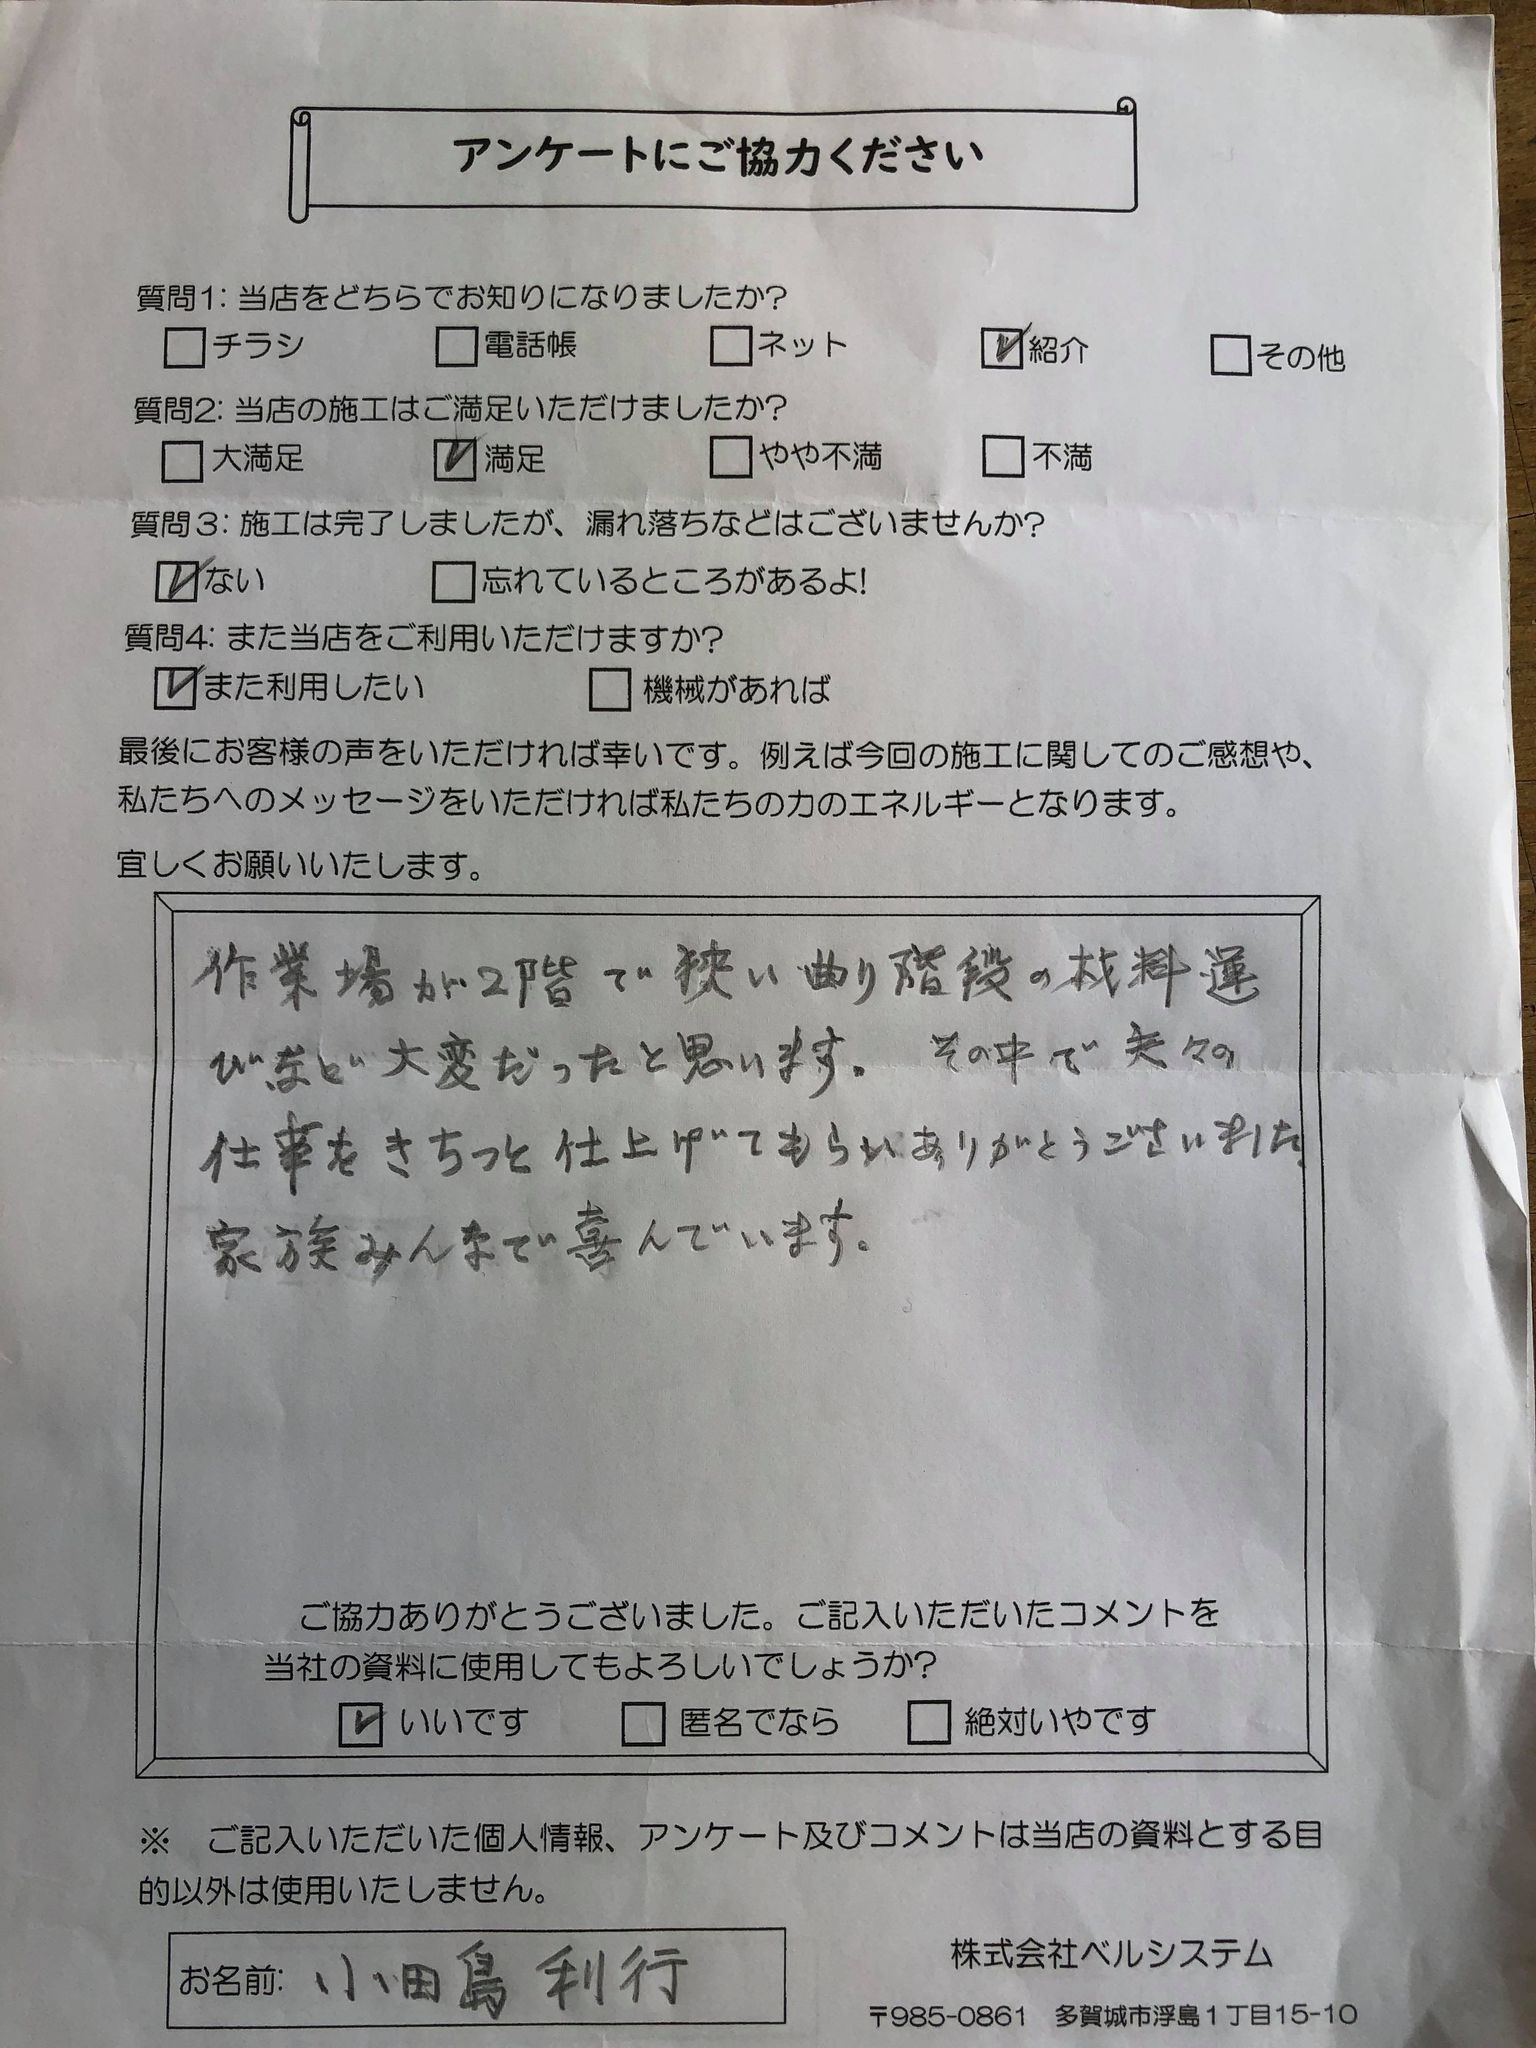 アンケートにご協力ください
質問1: 当店をどちらでお知りになりましたか?
チラシ 電話帳 ネット 紹介 その他
質問2: 当店の施工はご満足いただけましたか?
大満足 満足 やや不満 不満
質問3: 施工は完了しましたが、漏れ落ちなどはございませんか?
ない 忘れているところがあるよ!
質問4: また当店をご利用いただけますか?
また利用したい 機械があれば
最後にお客様の声をいただければ幸いです。例えば今回の施工に関してのご感想や、
私たちへのメッセージをいただければ私たちの力のエネルギーとなります。
宜しくお願いいたします。
作業場が2階で狭い曲り階段の材料運
びなど大変だったと思います。その中で夫々の
仕事をきちっと仕上げてもらいありがとうございました。
家族みんなで喜んでいます。
ご協力ありがとうございました。ご記入いただいたコメントを
当社の資料に使用してもよろしいでしょうか?
いいです 匿名でなら 絶対いやです
※ ご記入いただいた個人情報、アンケート及びコメントは当店の資料とする目
的以外は使用いたしません。
お名前: 小田島 利行
株式会社ベルシステム
〒985-0861 多賀城市浮島1丁目15-10